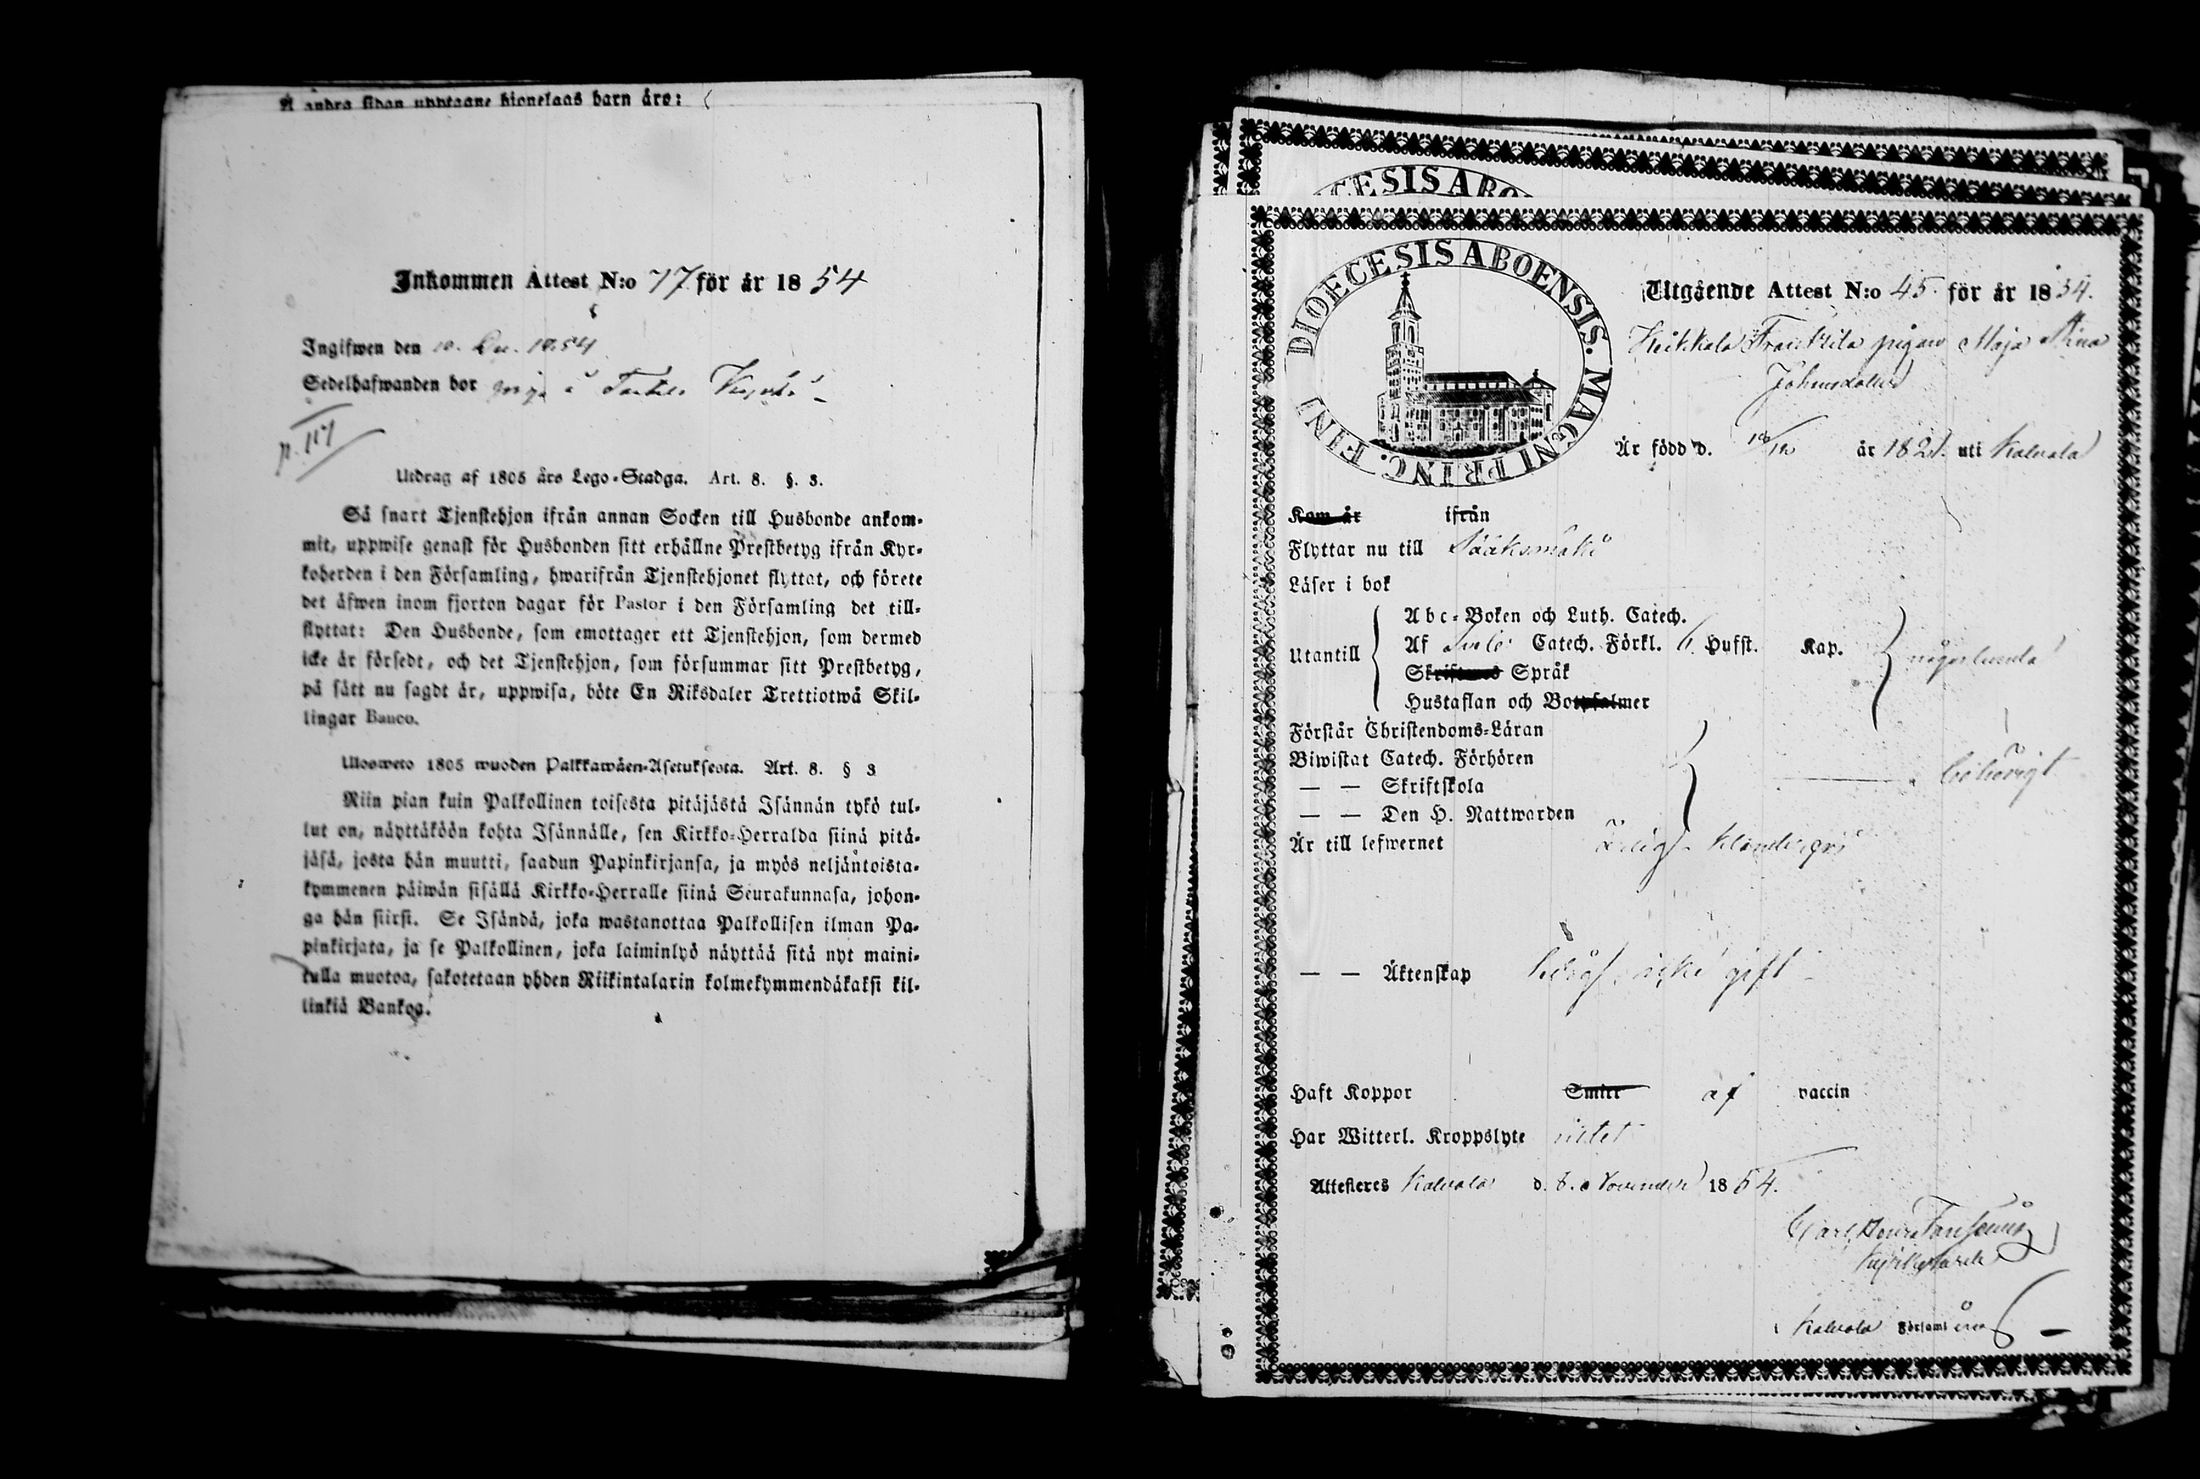 Å andra sidan upptagne hionelags barn äro:
Inkommen Attest N:o 77 för år 1854
Ingifwen den 10. Dec. 1854
Sedelhafwanden bor piga å
p. 117
Utdrag af 1805 års Lego-Stadga. Art. 8. §. 3.
Så snart Tjenstehjon ifrån annan Socken till Husbonde ankom-
mit, uppwise genast för Husbonden sitt erhållne Prestbetyg ifrån Kyr-
koherden i den Församling, hwarifrån Tjenstehjonet flyttat, och förete
det äfwen inom fjorton dagar för Pastor i den Församling det till-
flyttat: Den Husbonde, som emottager ett Tjenstehjon, som dermed
icke är försedt, och det Tjenstehjon, som försummar sitt Prestbetyg,
på sätt nu sagdt är, uppwisa, böte En Riksdaler Trettiotwå Skil-
lingar Banco.
Ulosweto 1805 wuoden Palkkawäen-Asetuksesta. Art. 8. § 3
Niin pian kuin Palkollinen toisesta pitäjästä Isännän tykö tul-
lut on, näyttäköön kohta Isännälle, sen Kirkko-Herralda siinä pitä-
jäsä, josta hän muutti, saadun Papinkirjansa, ja myös neljäntoista-
kymmenen päiwän sisällä Kirkko-Herralle siinä Seurakunnasa, johon-
ga hän siirsi. Se Isändä, joka wastanottaa Palkollisen ilman Pa-
pinkirjata, ja se Palkollinen, joka laiminlyö näyttää sitä nyt maini-
tulla muotoa, sakotetaan yhden Riikintalarin kolmekymmendäkaksi kil-
linkiä Bankoa.
DIOECESIS ABOENSIS. MAGNI PRINC. FINL
Utgående Attest N:o 45 för år 1854.
Heikkala Franttila pigan Maja Stina
Johansdotter
Är född d. år 1821. uti Kalvola
Kom år ifrån
Flyttar nu till Sääksmäki
Läser i bok
Abc-Boken och Luth. Catech.
Utantill Af Catech. Förkl. 6 Hufst. Kap. någorlunda
Skriftenes Språk
Hustaflan och Botpsalmer
Förstår Christendoms-Läran
Biwistat Catech. Förhören behörigt
— — Skriftskola
— — Den H. Nattwarden
Är till lefwernet ärlig
— — Äktenskap ledig, icke gift
Haft Koppor Smitt af vaccin
Har Witterl. Kroppslyte intet
Attesteres Kalvola d. 6. November 1854.
Carl Henr
Kyrkoherde
i Kalvola Församl